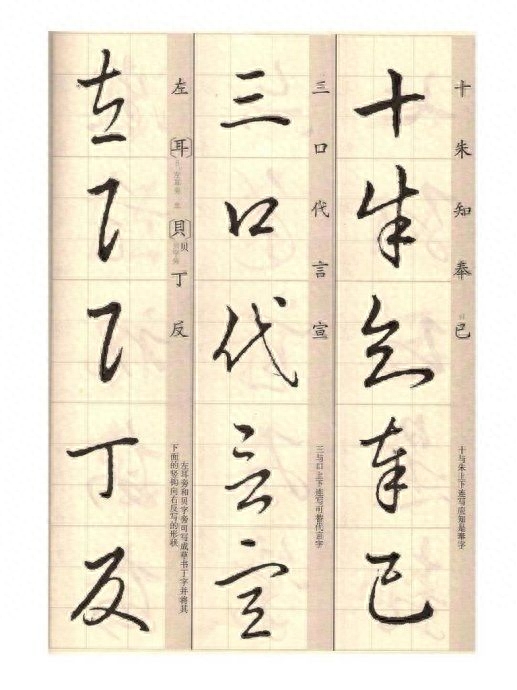 十 朱 知 奉 已
十与朱上下连写应知是奉字
十朱知奉已
三 口 代 言 宣
三与口上下连写可替代言字
三口代言宣
左 〔耳〕 〔貝〕贝 丁 反
左耳旁
左耳旁和贝字旁可写成草书丁字并将其
下面的竖钩向右反写的形状
左
丁
反